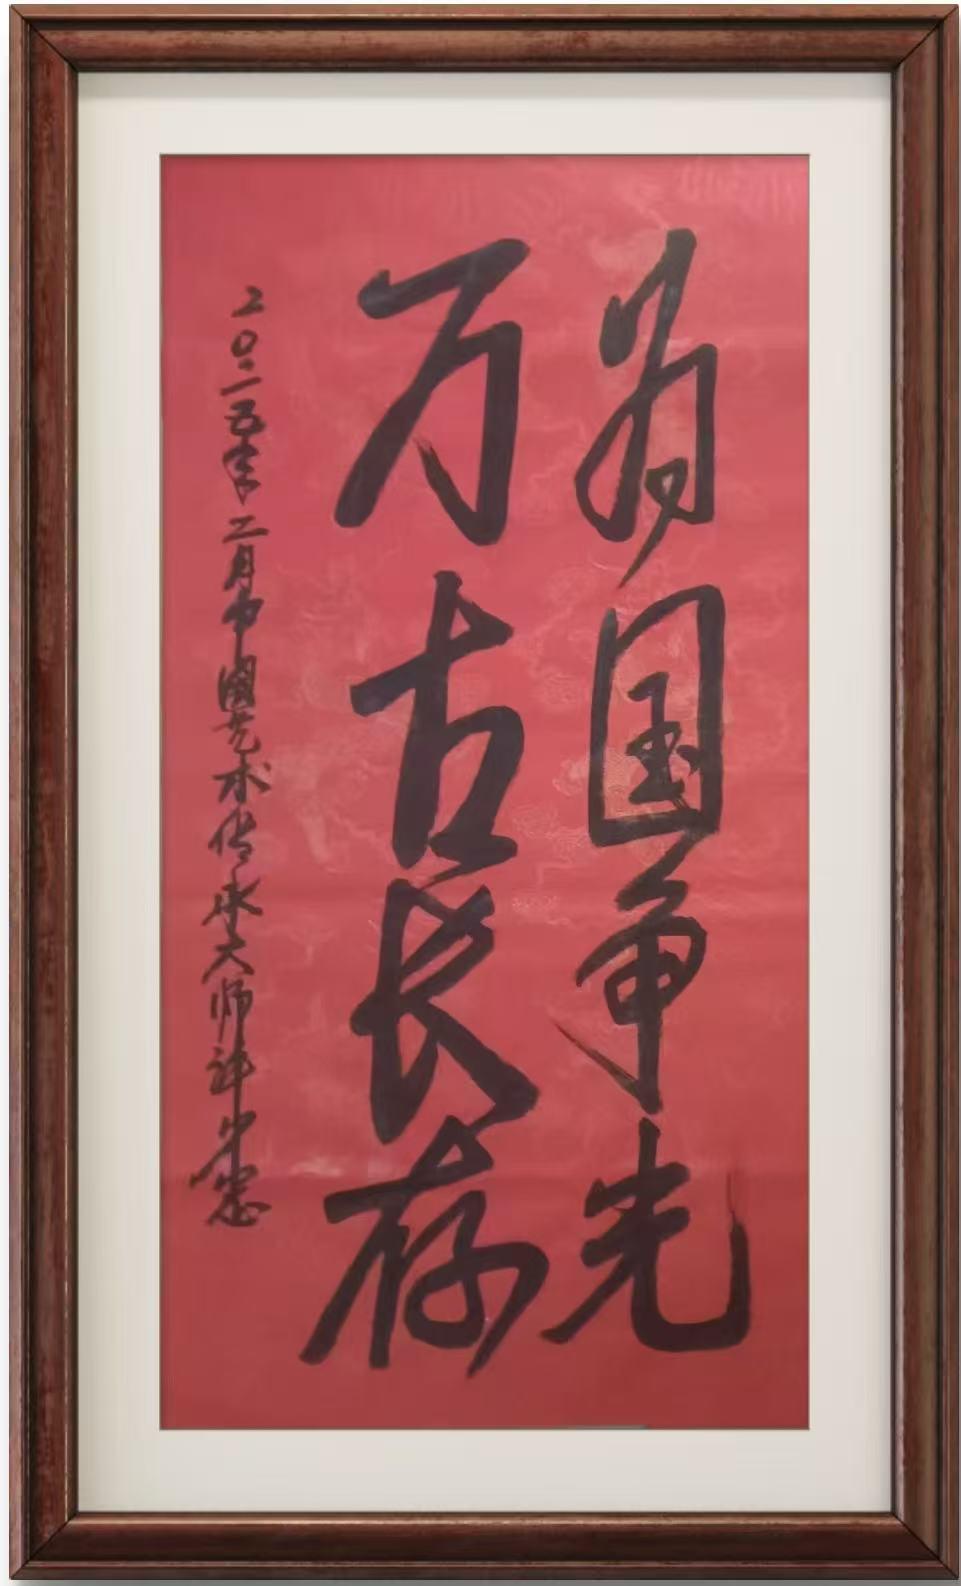 为国争光
万古长存
二〇二五年二月中國艺术传承大师许出忠